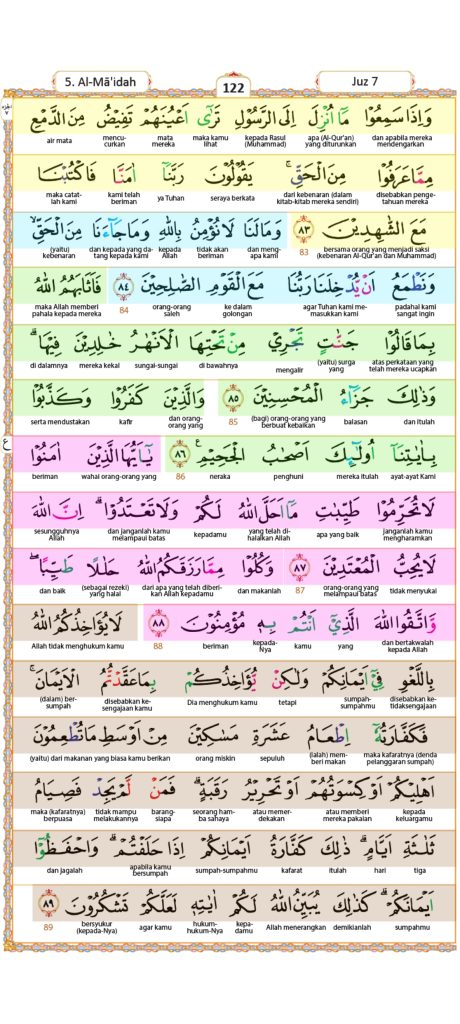 5. Al-Mā'idah
122
Juz 7
وَاِذَا سَمِعُوْا مَآ اُنْزِلَ اِلَى الرَّسُوْلِ تَرٰٓى اَعْيُنَهُمْ تَفِيْضُ مِنَ الدَّمْعِ
dan apabila mereka mendengarkan apa (Al-Qur'an) yang diturunkan kepada Rasul (Muhammad) maka kamu lihat mata mereka mencucurkan air mata
مِمَّا عَرَفُوْا مِنَ الْحَقِّۚ يَقُوْلُوْنَ رَبَّنَآ اٰمَنَّا فَاكْتُبْنَا
disebabkan pengetahuan mereka dari kebenaran (dalam kitab-kitab mereka sendiri) seraya berkata ya Tuhan kami telah beriman maka catatlah kami
مَعَ الشّٰهِدِيْنَ ٨٣ وَمَا لَنَا لَا نُؤْمِنُ بِاللّٰهِ وَمَا جَاۤءَنَا مِنَ الْحَقِّۙ
bersama orang yang menjadi saksi (kebenaran Al-Qur'an dan Muhammad) 83 dan mengapa kami tidak akan beriman kepada Allah dan kepada yang datang kepada kami (yaitu) kebenaran
وَنَطْمَعُ اَنْ يُّدْخِلَنَا رَبُّنَا مَعَ الْقَوْمِ الصّٰلِحِيْنَ ٨٤ فَاَثَابَهُمُ اللّٰهُ
padahal kami sangat ingin agar Tuhan kami memasukkan kami ke dalam golongan orang-orang saleh 84 maka Allah memberi pahala kepada mereka
بِمَا قَالُوْا جَنّٰتٍ تَجْرِيْ مِنْ تَحْتِهَا الْاَنْهٰرُ خٰلِدِيْنَ فِيْهَاۗ
atas perkataan yang telah mereka ucapkan (yaitu) surga yang mengalir di bawahnya sungai-sungai mereka kekal di dalamnya
وَذٰلِكَ جَزَاۤءُ الْمُحْسِنِيْنَ ٨٥ وَالَّذِيْنَ كَفَرُوْا وَكَذَّبُوْا
dan itulah balasan (bagi) orang-orang yang berbuat kebaikan 85 dan orang-orang yang kafir serta mendustakan
بِاٰيٰتِنَآ اُولٰۤىِٕكَ اَصْحٰبُ الْجَحِيْمِ ࣖ ٨٦ يٰٓاَيُّهَا الَّذِيْنَ اٰمَنُوْا
ayat-ayat Kami mereka itulah penghuni neraka 86 wahai orang-orang yang beriman
لَا تُحَرِّمُوْا طَيِّبٰتِ مَآ اَحَلَّ اللّٰهُ لَكُمْ وَلَا تَعْتَدُوْاۗ اِنَّ اللّٰهَ
janganlah kamu mengharamkan apa yang baik yang telah dihalalkan Allah kepadamu dan janganlah kamu melampaui batas sesungguhnya Allah
لَا يُحِبُّ الْمُعْتَدِيْنَ ٨٧ وَكُلُوْا مِمَّا رَزَقَكُمُ اللّٰهُ حَلٰلًا طَيِّبًاۖ
tidak menyukai orang-orang yang melampaui batas 87 dan makanlah dari apa yang telah diberikan Allah kepadamu (sebagai rezeki) yang halal dan baik
وَّاتَّقُوا اللّٰهَ الَّذِيْٓ اَنْتُمْ بِهٖ مُؤْمِنُوْنَ ٨٨ لَا يُؤَاخِذُكُمُ اللّٰهُ
dan bertakwalah kepada Allah yang kamu kepada-Nya beriman 88 Allah tidak menghukum kamu
بِاللَّغْوِ فِيْٓ اَيْمَانِكُمْ وَلٰكِنْ يُّؤَاخِذُكُمْ بِمَا عَقَّدْتُّمُ الْاَيْمَانَۚ
disebabkan ketidaksengajaan sumpah-sumpahmu tetapi Dia menghukum kamu disebabkan kesengajaan kamu (dalam) bersumpah
فَكَفَّارَتُهٗٓ اِطْعَامُ عَشَرَةِ مَسٰكِيْنَ مِنْ اَوْسَطِ مَا تُطْعِمُوْنَ
maka kafaratnya (denda pelanggaran sumpah) (ialah) memberi makan sepuluh orang miskin (yaitu) dari makanan yang biasa kamu berikan
اَهْلِيْكُمْ اَوْ كِسْوَتُهُمْ اَوْ تَحْرِيْرُ رَقَبَةٍۗ فَمَنْ لَّمْ يَجِدْ فَصِيَامُ
kepada keluargamu atau memberi mereka pakaian atau memerdekakan seorang hamba sahaya barangsiapa tidak mampu melakukannya maka (kafaratnya) berpuasa
ثَلٰثَةِ اَيَّامٍۗ ذٰلِكَ كَفَّارَةُ اَيْمَانِكُمْ اِذَا حَلَفْتُمْۗ وَاحْفَظُوْٓا
tiga hari itulah kafarat sumpah-sumpahmu apabila kamu bersumpah dan jagalah
اَيْمَانَكُمْۗ كَذٰلِكَ يُبَيِّنُ اللّٰهُ لَكُمْ اٰيٰتِهٖ لَعَلَّكُمْ تَشْكُرُوْنَ ٨٩
sumpahmu demikianlah Allah menerangkan kepadamu hukum-hukum-Nya agar kamu bersyukur (kepada-Nya) 89
ع